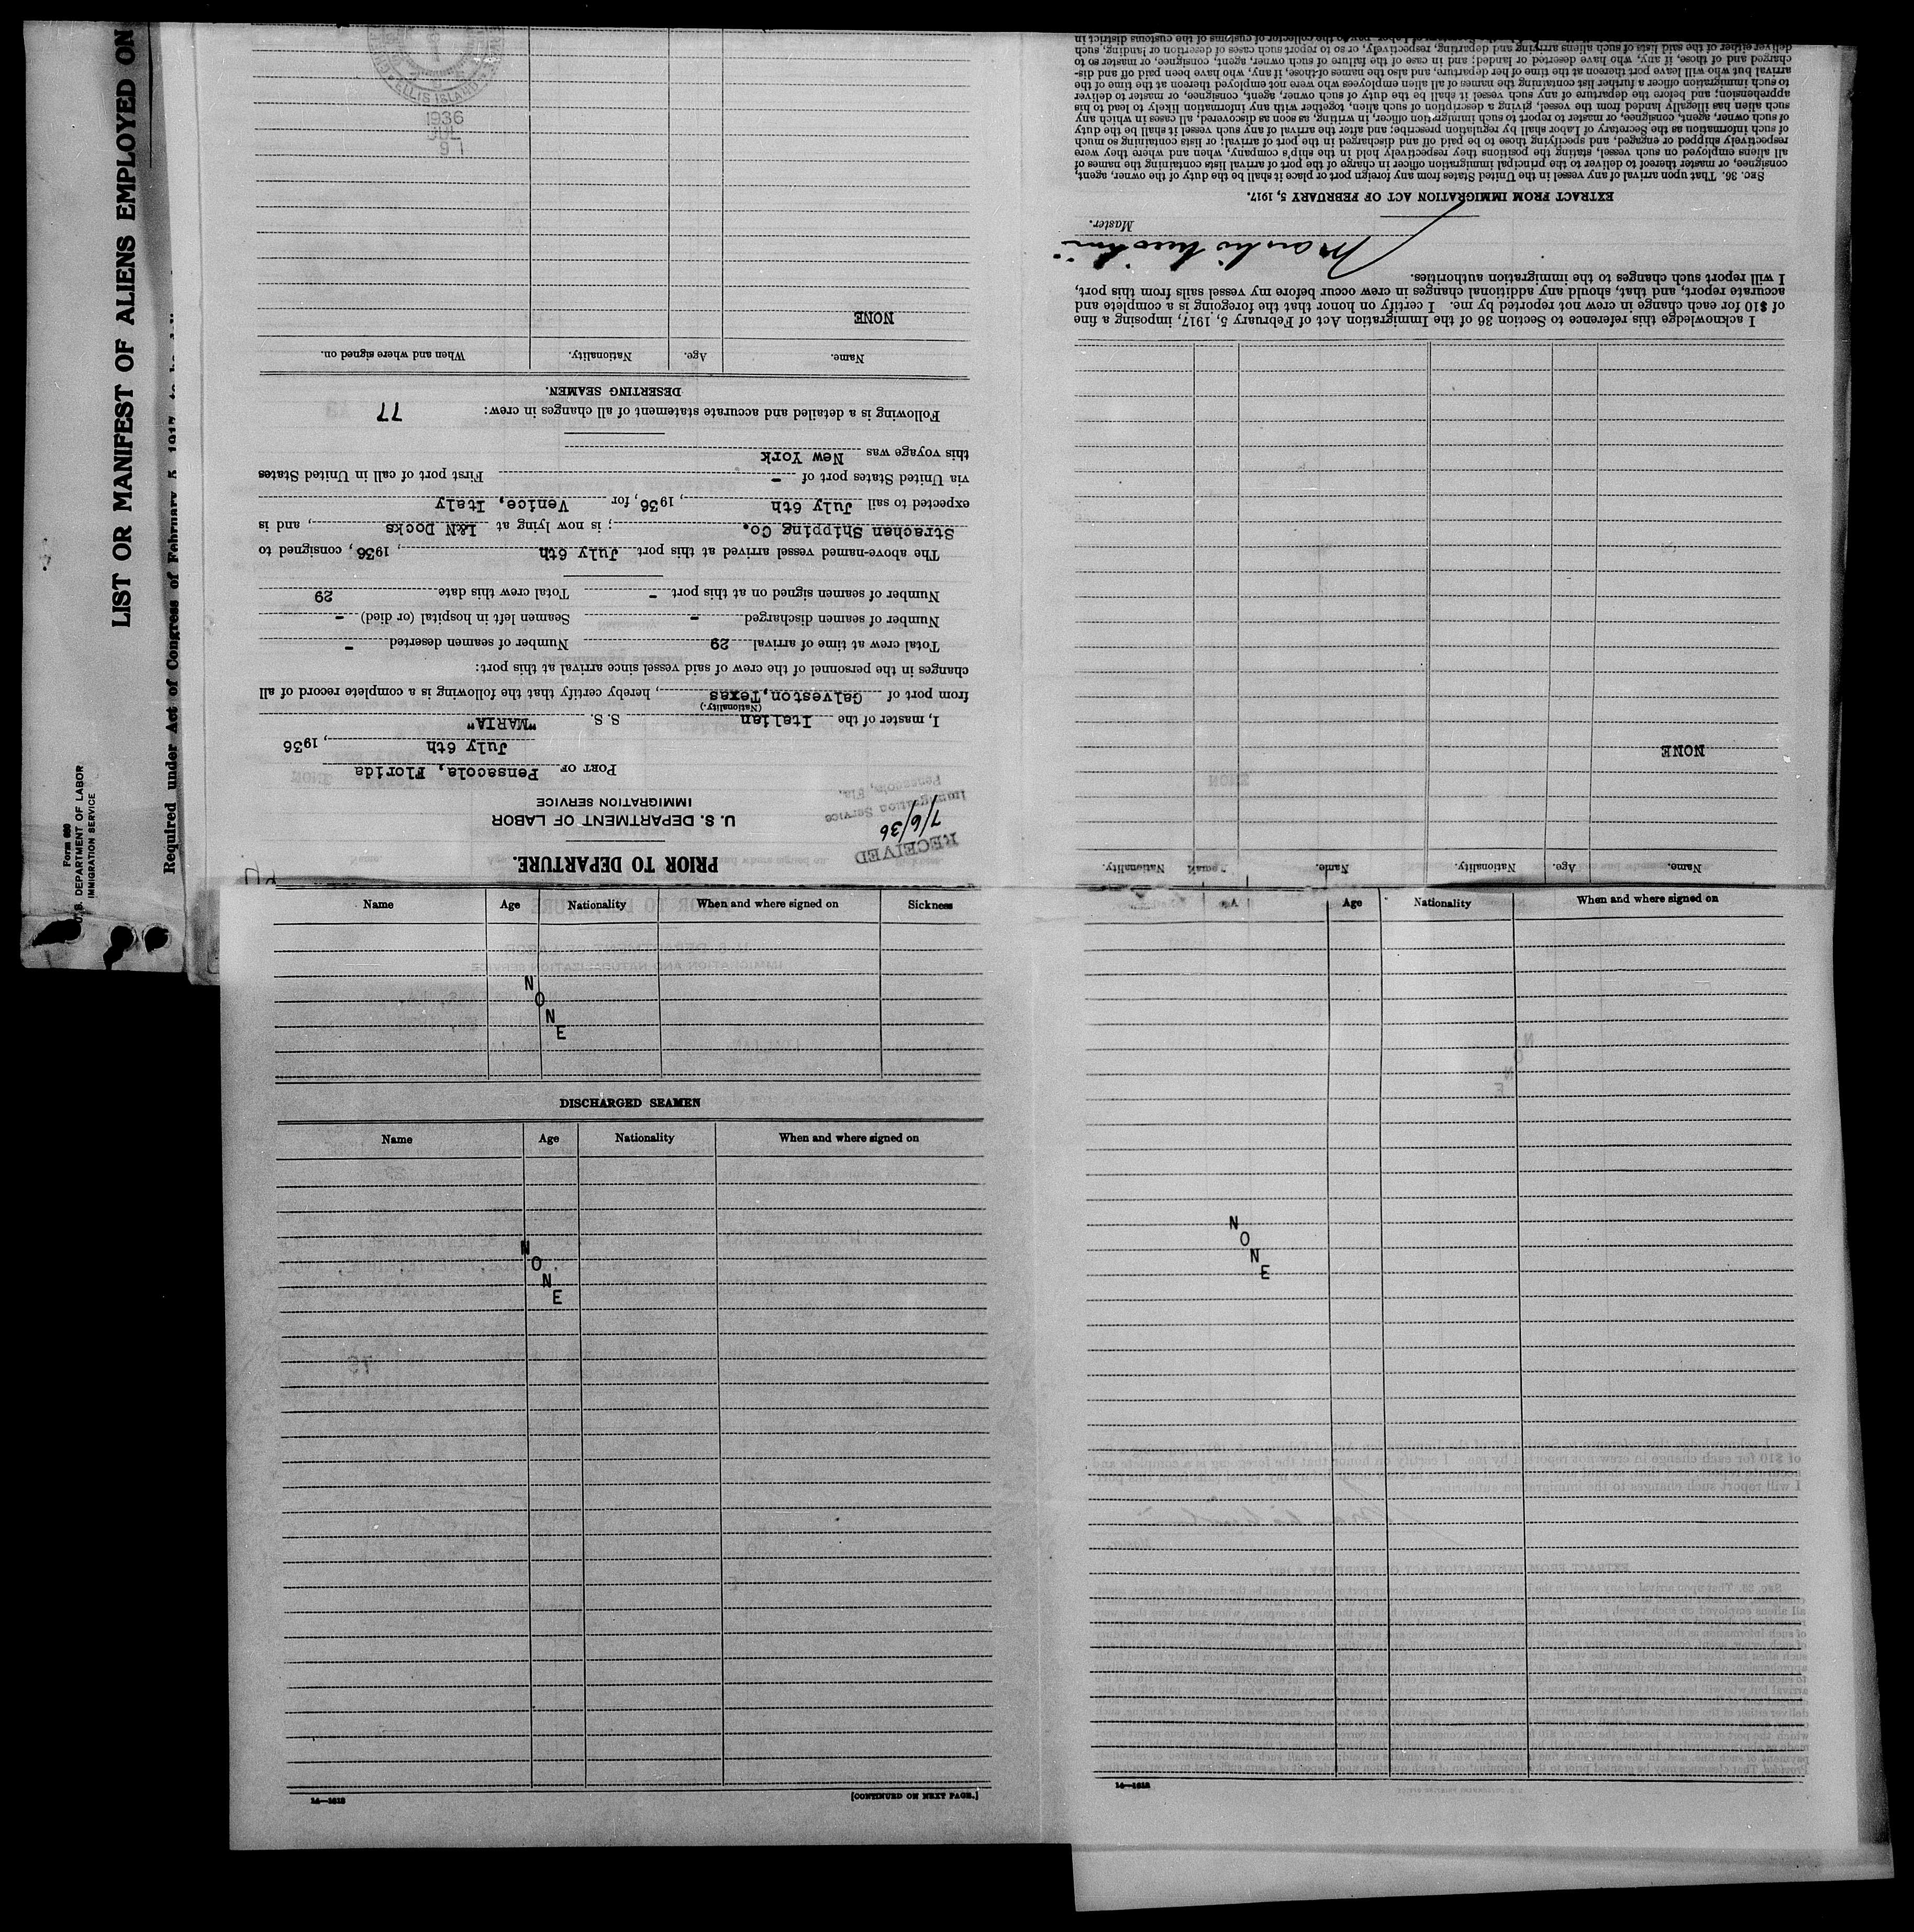 LIST OR MANIFEST OF ALIENS EMPLOYED ON
Required under Act of Congress of February 5, 1917
Form 680
U. S. DEPARTMENT OF LABOR
IMMIGRATION SERVICE
PRIOR TO DEPARTURE.
U. S. DEPARTMENT OF LABOR
IMMIGRATION SERVICE
RECEIVED
7/6/36
Immigration Service
Pensacola, Fla.
PORT OF Pensacola, Florida
July 6th, 1936
I, master of the Italian S. S. "MARIA"
(Nationality.)
from port of Galveston, Texas, hereby certify that the following is a complete record of all
changes in the personnel of the crew of said vessel since arrival at this port:
Total crew at time of arrival 29 Number of seamen deserted -
Number of seamen discharged - Seamen left in hospital (or died) -
Number of seamen signed on at this port - Total crew this date 29
The above-named vessel arrived at this port July 6th, 1936, consigned to
Strachan Shipping Co.; is now lying at L&N Docks, and is
expected to sail July 6th, 1936, for Venice, Italy
via United States port of - First port of call in United States
this voyage was New York
Following is a detailed and accurate statement of all changes in crew: 77
DESERTING SEAMEN.
Name. Age. Nationality. When and where signed on.
NONE
1936
JUL
ELLIS ISLAND
Name. Age. Nationality. Name. Nationality.
NONE
I acknowledge this reference to Section 36 of the Immigration Act of February 5, 1917, imposing a fine
of $10 for each change in crew not reported by me. I certify on honor that the foregoing is a complete and
accurate report, and that, should any additional changes in crew occur before my vessel sails from this port,
I will report such changes to the immigration authorities.
Master.
EXTRACT FROM IMMIGRATION ACT OF FEBRUARY 5, 1917.
SEC. 36. That upon arrival of any vessel in the United States from any foreign port or place it shall be the duty of the owner, agent,
consignee, or master thereof to deliver to the principal immigration officer in charge of the port of arrival lists containing the names of
all aliens employed on such vessel, stating the positions they respectively hold in the ship's company, when and where they were
respectively shipped or engaged, and specifying those to be paid off and discharged in the port of arrival; or lists containing so much
of such information as the Secretary of Labor shall by regulation prescribe; and after the arrival of any such vessel it shall be the duty
of such owner, agent, consignee, or master to report to such immigration officer, in writing, as soon as discovered, all cases in which any
such alien has illegally landed from the vessel, giving a description of such alien, together with any information likely to lead to his
apprehension; and before the departure of any such vessel it shall be the duty of such owner, agent, consignee, or master to deliver
to such immigration officer a further list containing the names of all alien employees who were not employed thereon at the time of the
arrival but who will leave port thereon at the time of her departure, and also the names of those, if any, who have been paid off and dis-
charged and of those, if any, who have deserted or landed; and in case of the failure of such owner, agent, consignee, or master so to
deliver either of the said lists of such aliens arriving and departing, respectively, or so to report such cases of desertion or landing, such
collector of customs of the customs district in
Name Age Nationality When and where signed on Sickness
NONE
DISCHARGED SEAMEN
Name Age Nationality When and where signed on
NONE
14—1618
[CONTINUED ON NEXT PAGE.]
Age Nationality When and where signed on
NONE
14—1618